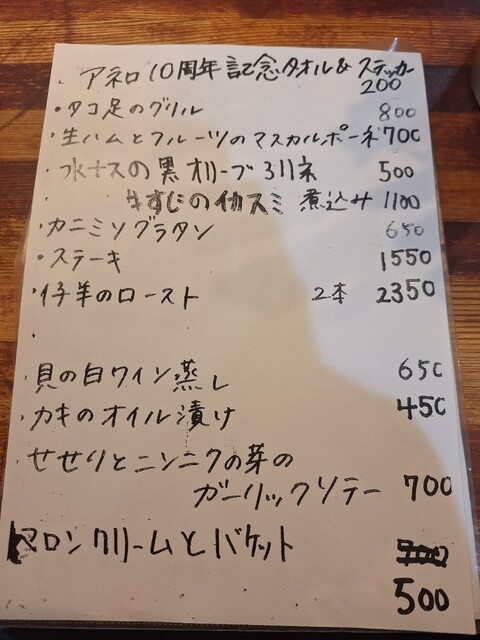 ・アネロ10周年記念タオル&ステッカー
200
・タコ足のグリル 800
・生ハムとフルーツのマスカルポーネ 700
・水ナスの黒オリーブマリネ 500
・牛すじのイカスミ煮込み 1100
・カニミソグラタン 650
・ステーキ 1550
・仔羊のロースト 2本 2350
・
・貝の白ワイン蒸し 650
・カキのオイル漬け 450
・せせりとニンニクの芽の
ガーリックソテー 700
マロンクリームとバケット
500